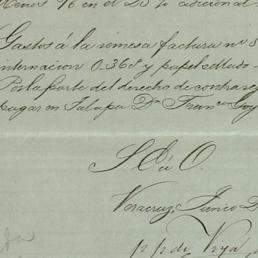 Menos 16 en el 20 % adicional
Gastos á la remesa factura nº 8
internacion 0.368 y papel sellado
Por la parte del derecho de contrareg
pagar en Jalapa Dn Franco Goy
S. E ú O.
Veracruz, Junio
p. p. de